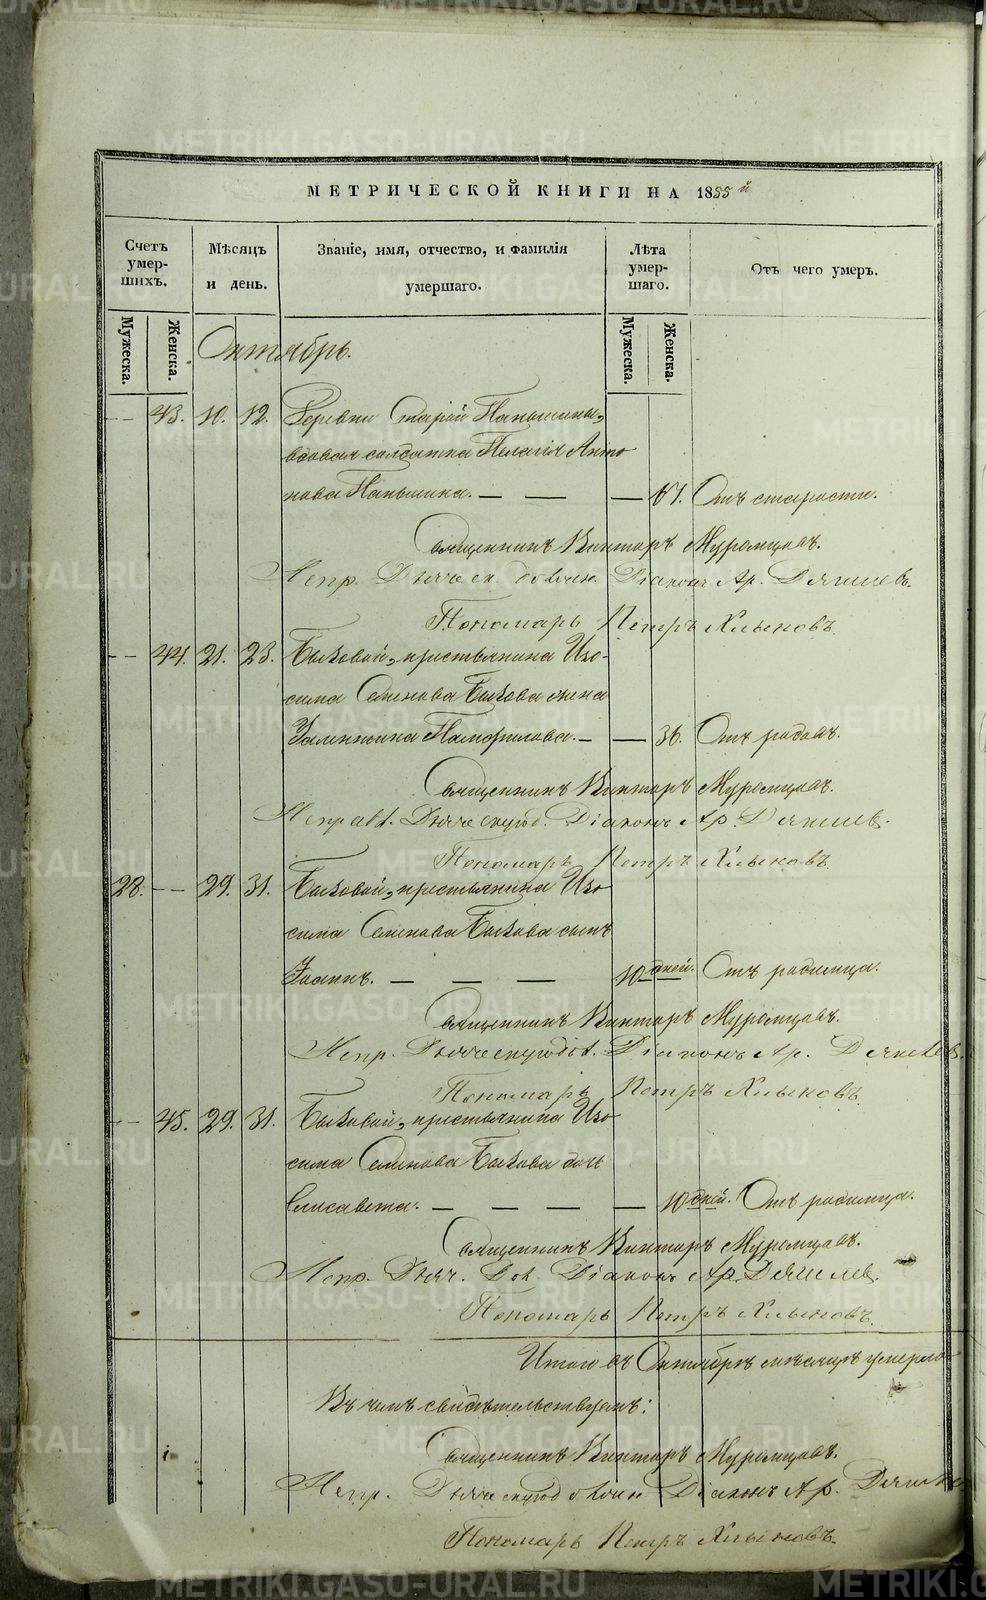 МЕТРИЧЕСКОЙ КНИГИ НА 1855й
Счетъ умер- шихъ.
Мѣсяцъ и день.
Званіе, имя, отчество, и фамилія умершаго.
Лѣта умер- шаго.
Отъ чего умеръ.
Мужеска. Женска.
Мужеска. Женска.
Октябрь.
43. 10. 12. Деревни Старой Паньшины,
вдовая солдатка Пелагія Анто
нова Паньшина. 67. Отъ старости.
Священникъ Викторъ Муромцовъ.
Испр. Діаконъ Ар.
Пономарь Петръ Хлыновъ.
44. 21. 23. Быковой, крестьянина Изо-
сима Семенова Быкова жена
Памфилова. 36. Отъ родовъ.
Священникъ Викторъ Муромцовъ.
Діаконъ Ар.
Пономарь Петръ Хлыновъ
28. 29. 31. Быковой, крестьянина Изо
сима Семенова Быкова сынъ
Іоаннъ. 10 дней. Отъ родимца.
Священникъ Викторъ Муромцовъ.
Испр. Діаконъ Ар.
Пономарь Петръ Хлыновъ.
45. 29. 31. Быковой, крестьянина Изо
сима Семенова Быкова дочь
Елисавета. 10 дней. Отъ родимца.
Священникъ Викторъ Муромцовъ.
Испр. Діаконъ Ар.
Пономарь Петръ Хлыновъ.
Итого въ Октябрѣ мѣсяцѣ умерло
Въ чемъ свидѣтельствуемъ:
Священникъ Викторъ Муромцовъ.
Испр. Діаконъ Ар.
Пономарь Петръ Хлыновъ.
METRIKI.GASO-URAL.RU